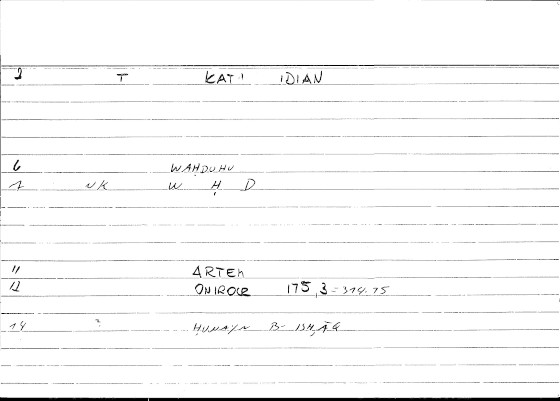 2 T KAT' IDIAN
6 WAḤDUHU
1 UK W Ḥ D
11 ARTEM
12 ONIROCR 175,3 = 314.15
14 ? ḤUNAYN B- ISḤĀQ